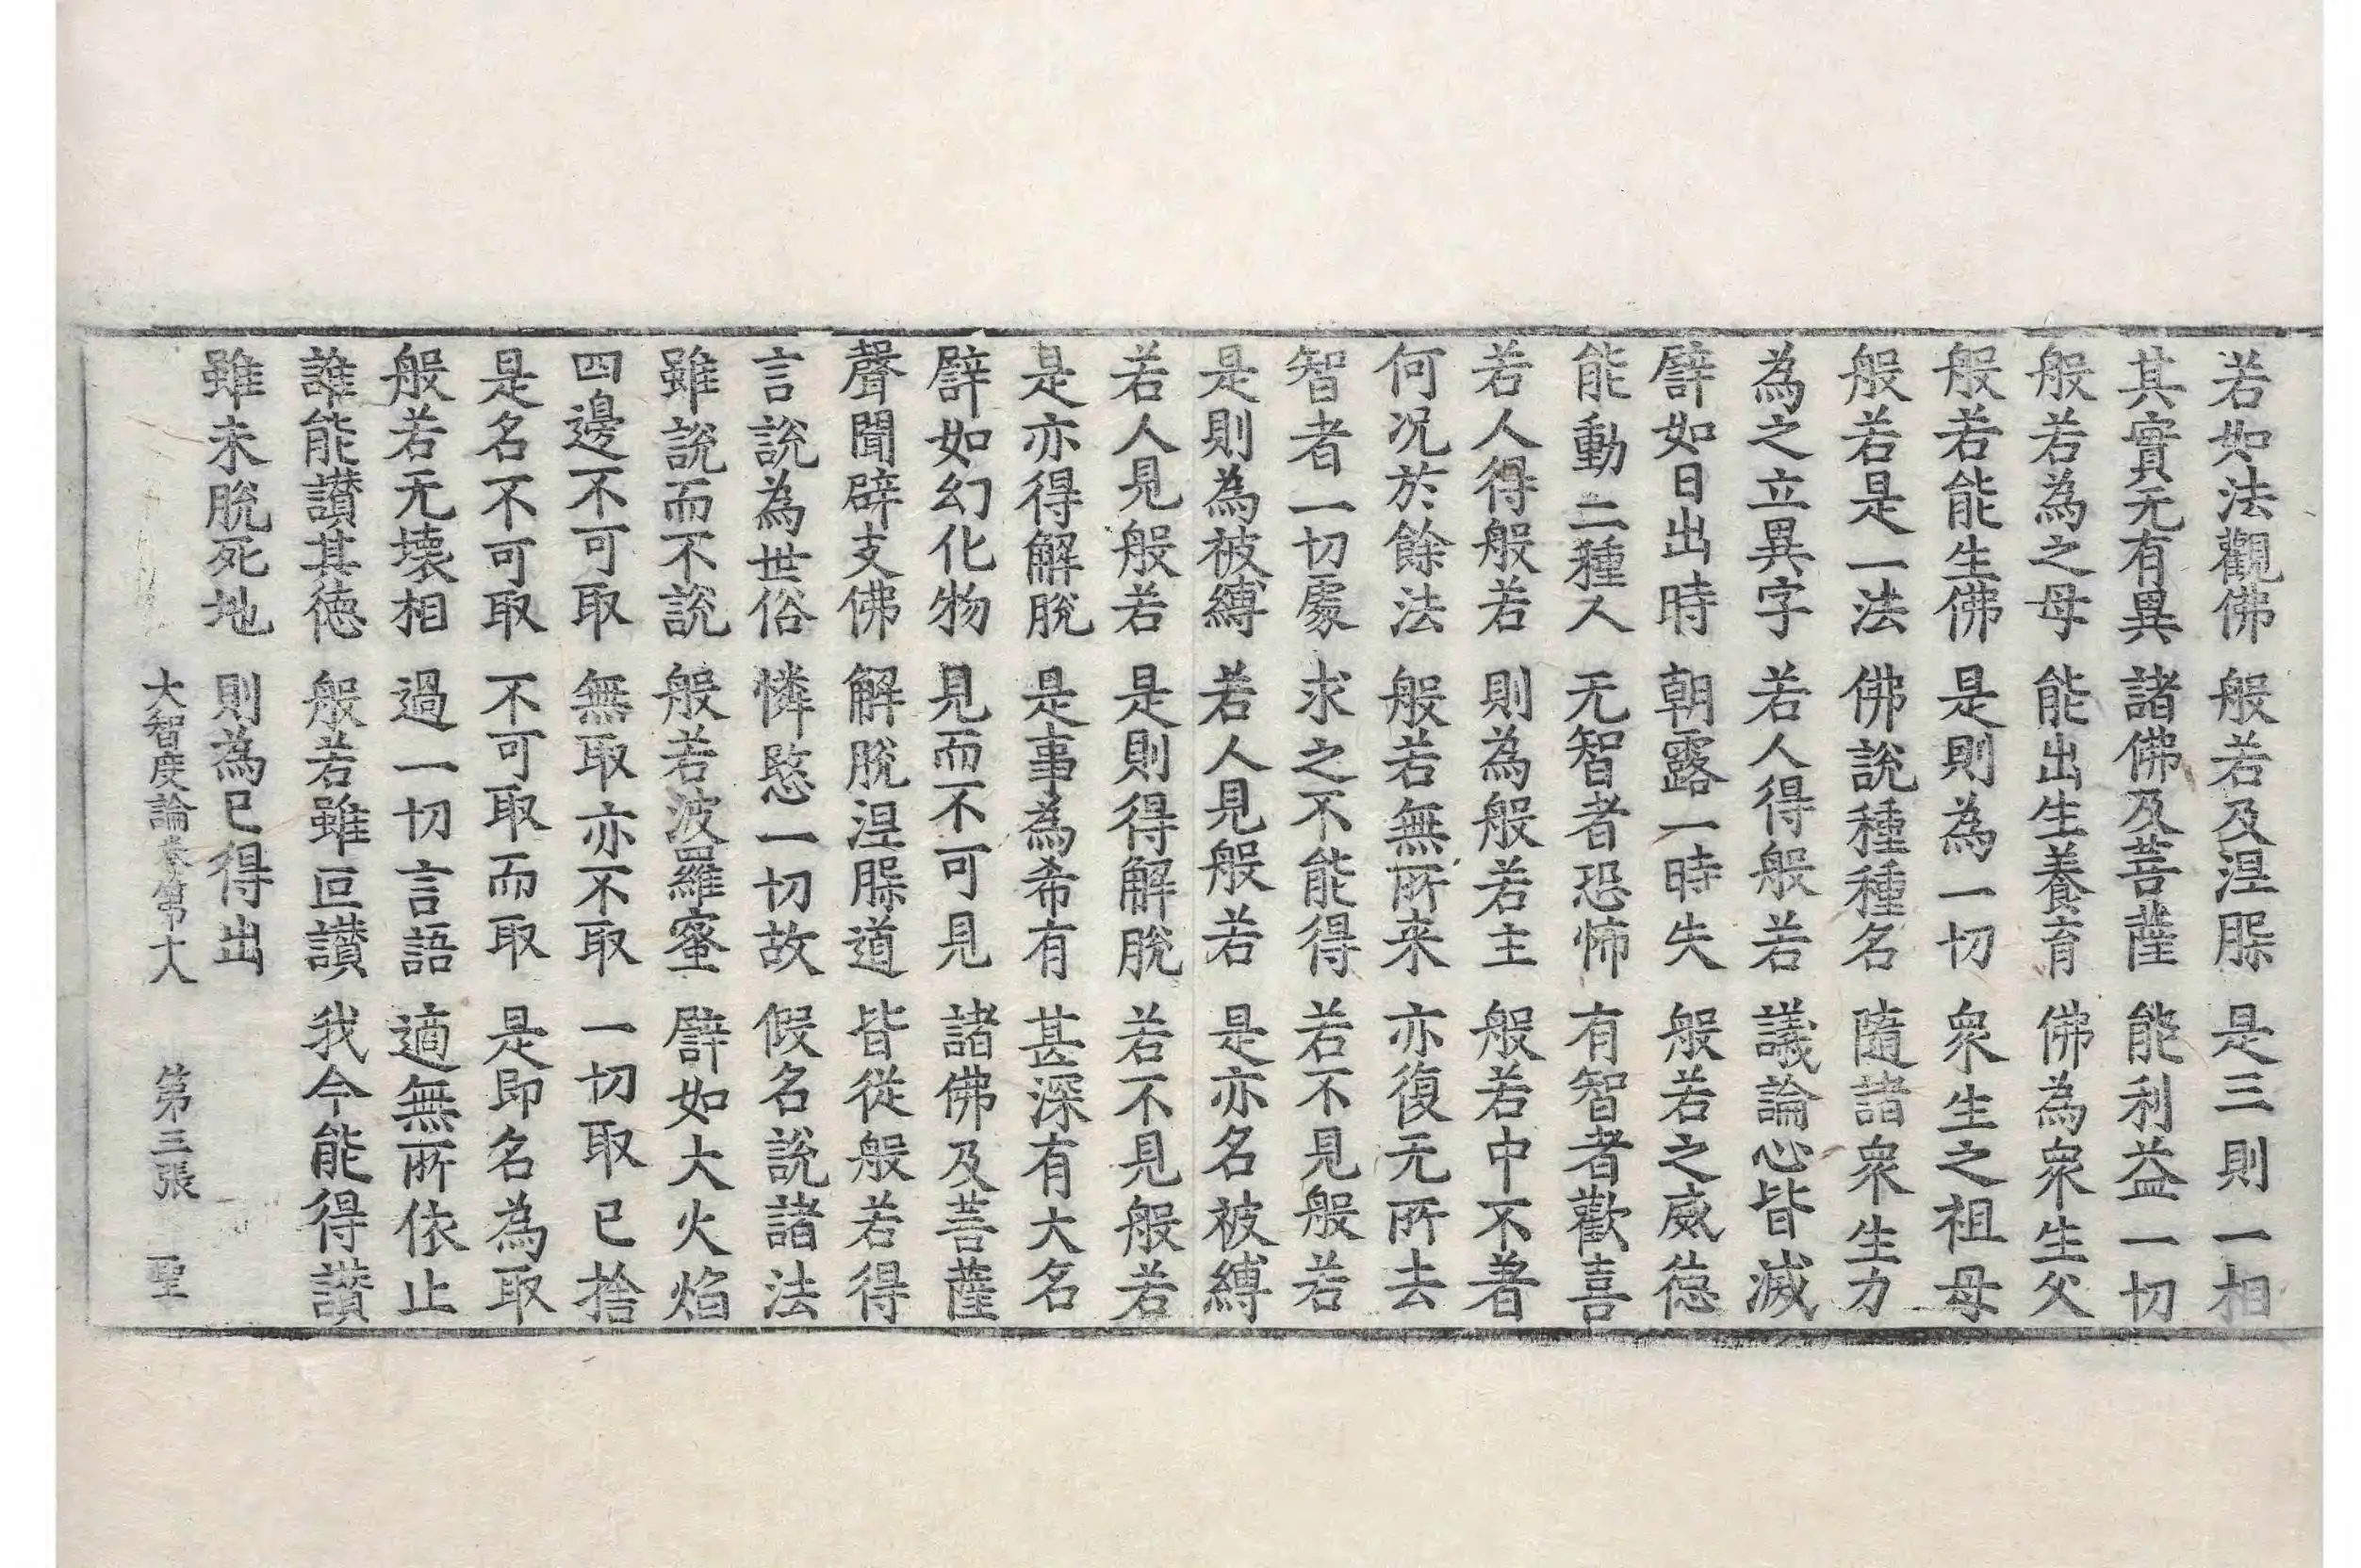 若如法觀佛　般若及涅槃　是三則一相
其實无有異　諸佛及菩薩　能利益一切
般若為之母　能出生養育　佛為衆生父
般若能生佛　是則為一切　衆生之祖母
般若是一法　佛說種種名　隨諸衆生力
為之立異字　若人得般若　議論心皆滅
譬如日出時　朝露一時失　般若之威德
能動二種人　无智者恐怖　有智者歡喜
若人得般若　則為般若主　般若中不著
何况於餘法　般若無所来　亦復无所去
智者一切處　求之不能得　若不見般若
是則為被縛　若人見般若　是亦名被縛
若人見般若　是則得解脫　若不見般若
是亦得解脫　是事為希有　甚深有大名
譬如幻化物　見而不可見　諸佛及菩薩
聲聞辟支佛　解脫涅槃道　皆從般若得
言說為世俗　憐愍一切故　假名說諸法
雖說而不說　般若波羅蜜　譬如大火焰
四邊不可取　無取亦不取　一切取已捨
是名不可取　不可取而取　是即名為取
般若无壞相　過一切言語　適無所依止
誰能讃其德　般若雖叵讃　我今能得讃
雖未脫死地　則為已得出
大智度論卷第十八　第三張　聖